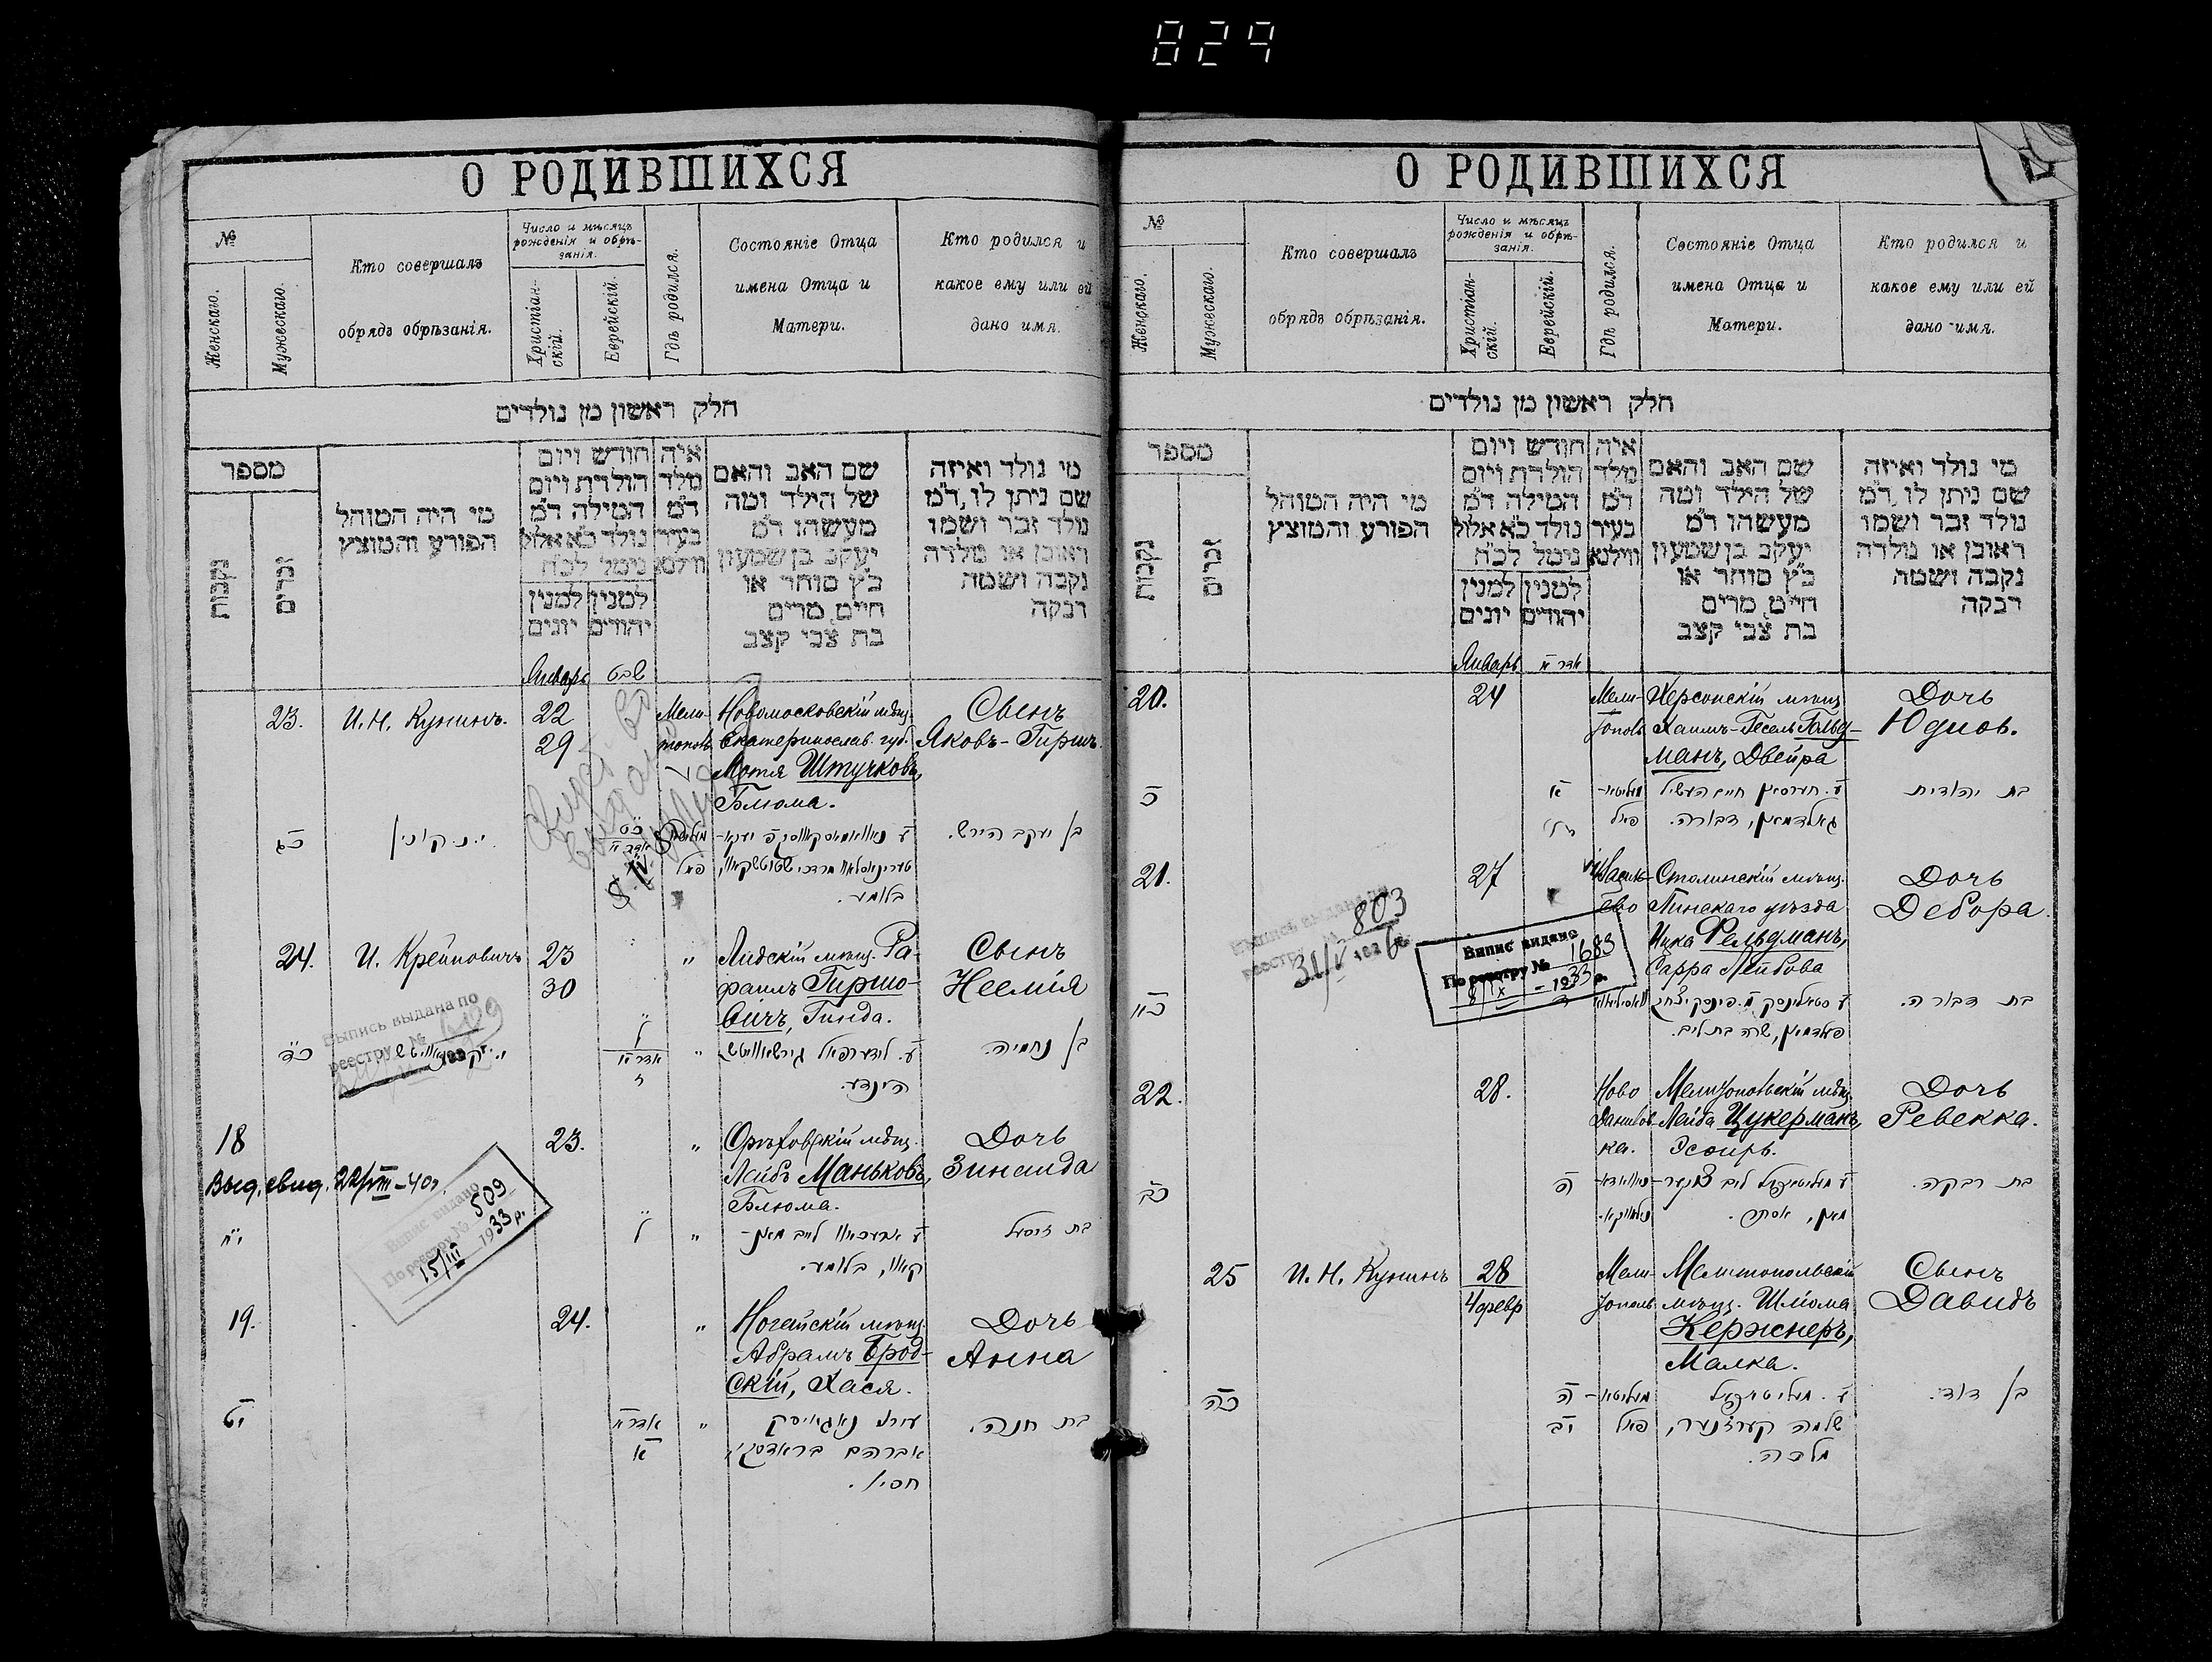 829
О РОДИВШИХСЯ
№
Женскаго.
Мужескаго.
Кто совершалъ
обрядъ обрѣзанія.
Число и мѣсяцъ
рожденія и обрѣ-
занія.
Христіан-
скій.
Еврейскій.
Гдѣ родился.
Состояніе Отца
имена Отца и
Матери.
Кто родился и
какое ему или ей
дано имя.
חלק ראשון מן נולדים
מספר
נקבות
זכרים
מי היה המוהל
הפורע והמוצץ
חודש ויום
הולדת ויום
המילה ד"מ
נולד כ"א אלול
נימל לכ"ח
למנין
יהודים
למנין
יונים
איה
מלד
ד"מ
בעיר
ווילנא
שם האב והאם
של הילד ומה
מעשהו ד"מ
יעקב בן שמעון
כ"ץ סוחר או
חייט, מרים
בת צבי קצב
מי נולד ואיזה
שם ניתן לו, ד"מ
נולד זכר ושמו
ראובן או נולדה
נקבה ושמה
רבקה
Январь שבט
23. И. Н. Кунинъ. 22 Мели- Новомосковскій мѣщ. Сынъ
29 тополь Екатеринослав. губ. Яковъ-Гиршъ.
Мотя Штучковъ,
Блюма.
כג
בן יעקב הירש.
בלומע.
24. И. Крейновичъ 23 " Лидскій мѣщ. Ра- Сынъ
30 фаилъ Гиршо- Неемія
вичъ, Гинда.
Выпись выдана по
реестру №
כד
בן נחמיה.
הינדע.
18 23. " Орѣховскій мѣщ. Дочь
Лейбъ Маньковъ, Зинаида
Блюма.
Выд. свид. 22/VIII-40г.
Випис видано
По реєстру № 509
15/III 1933 р.
יח
קאוו, בלומע.
19. 24. " Ногайскій мѣщ. Дочь
Абрамъ Брод- Анна
скій, Хася.
יט אדר א " בת חנה.
א אברהם בראדסקי
חסיא.
О РОДИВШИХСЯ
№
Женскаго.
Мужескаго.
Кто совершалъ
обрядъ обрѣзанія.
Число и мѣсяцъ
рожденія и обрѣ-
занія.
Христіан-
скій.
Еврейскій.
Гдѣ родился.
Состояніе Отца
имена Отца и
Матери.
Кто родился и
какое ему или ей
дано имя.
חלק ראשון מן נולדים
מספר
נקבות
זכרים
מי היה המוהל
הפורע והמוצץ
חודש ויום
הולדת ויום
המילה ד"מ
נולד כ"א אלול
נימל לכ"ח
למנין
יהודים
למנין
יונים
איה
מלד
ד"מ
בעיר
ווילנא
שם האב והאם
של הילד ומה
מעשהו ד"מ
יעקב בן שמעון
כ"ץ סוחר או
חייט, מרים
בת צבי קצב
מי נולד ואיזה
שם ניתן לו, ד"מ
נולד זכר ושמו
ראובן או נולדה
נקבה ושמה
רבקה
Январь אדר א
20. 24 Мели- Херсонскій мѣщ. Дочь
тополь Хаимъ-Гесель Гольд- Юдиѳь.
манъ, Двейра
כ א בת יהודית
גאלדמאן, דבורה.
21. 27 Василь- Столинскій мѣщ. Дочь
ево Пинскаго уѣзда Дебора.
Ицка Фельдманъ,
Сарра Лейбова
Выпись выдана по
реестру № 803
31/V 1936 г.
Випис видано
По реєстру № 1683
8/IX - 1933 р.
כא
בת דבורה.
פעלדמאן, שרה בת ליב.
22. 28. Ново Мелитопольскій мѣщ. Дочь
Данилов- Лейба Цукерманъ, Ревекка.
ка. Эсѳирь.
כב ה
בת רבקה.
מאן, אסתר.
25 И. Н. Кунинъ 28 Мели- Мелитопольскій Сынъ
4 февр тополь мѣщ. Шлёма Давидъ
Кержнеръ,
Малка.
כה ה
בן דוד.
יב פאל שלמה קערזנער,
מלכה.